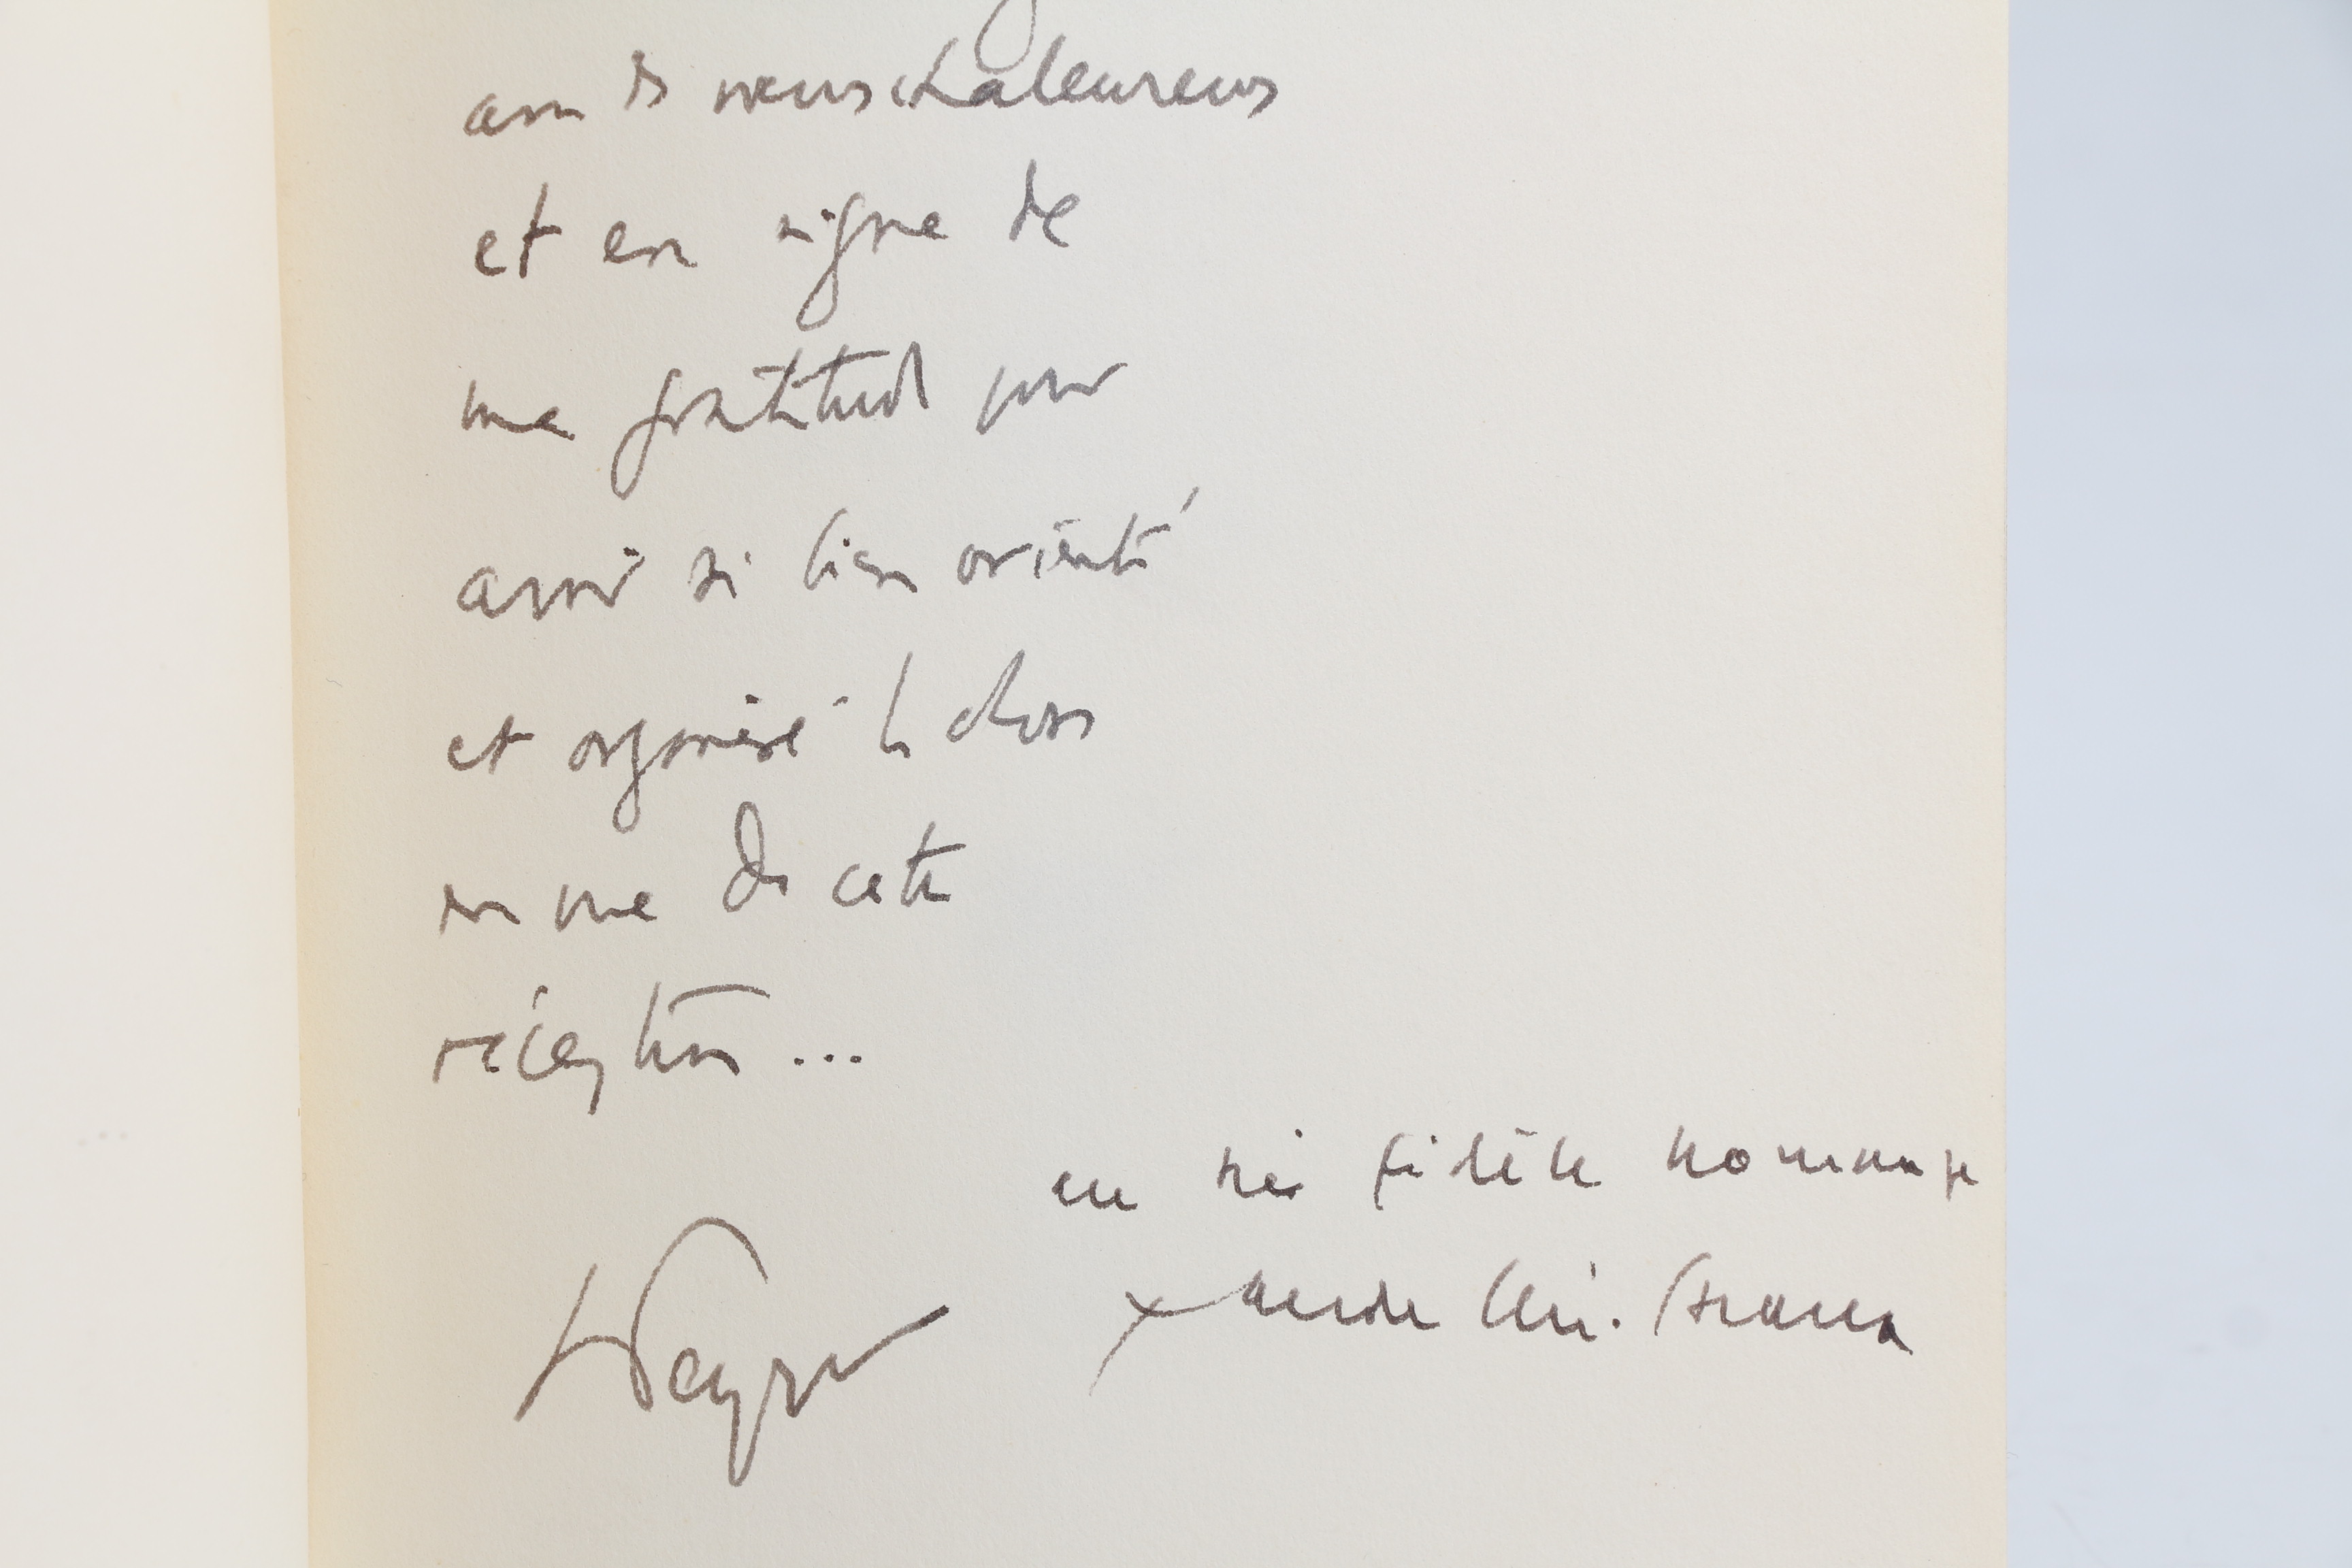 avec des vœux chaleureux
et en signe de
ma gratitude pour
avoir si bien orienté
et organisé les choses
en vue de cette
réception...
en très fidèle hommage